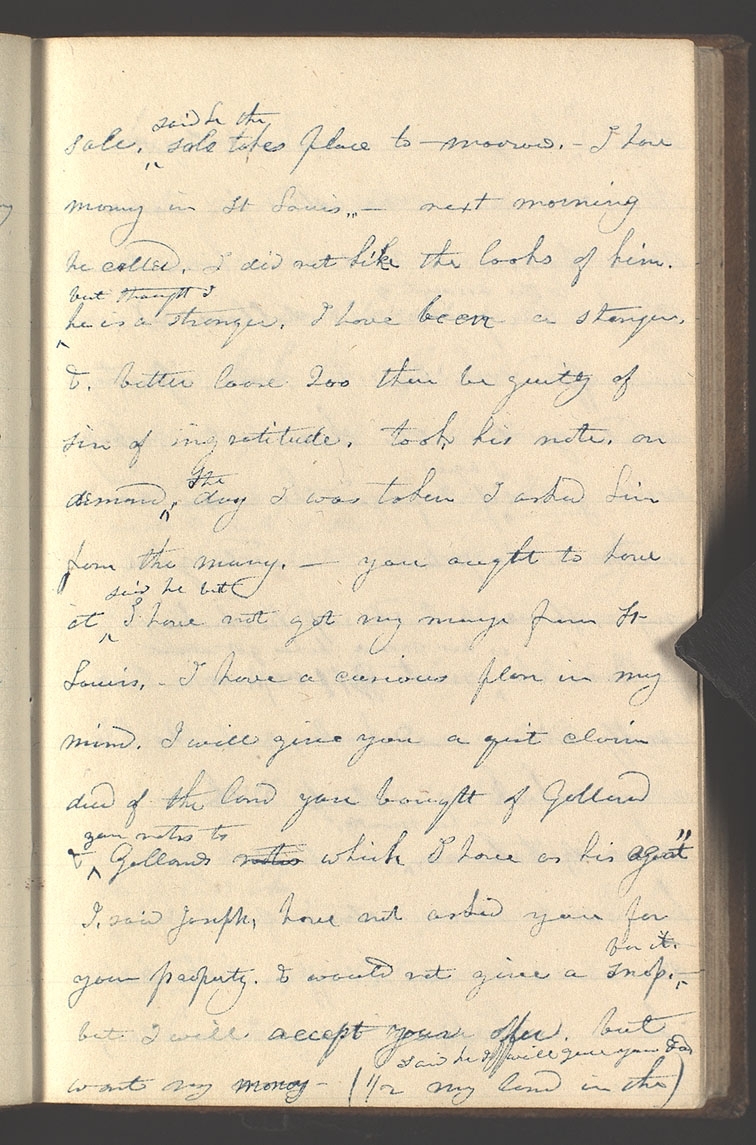 said he the
sale, sale takes place to-morrow. - I have
money in St Louis," - next morning
he called. I did not like the looks of him.
but thought I
he is a stranger. I have been a stranger.
&. better loose 200 then be guilty of
sin of ingratitude. took his note. on
The
demand, day I was taken I asked him
for the money. - you ought to have
said he but
it I have not got my money from St
Louis, - I have a curious plan in my
mind. I will give you a quit claim
deed of the land you bought of Galland
your notes to
& Gallands notes which I have as his agent"
I, said Joseph, have not asked you for
for it.
your property. & would not give a snap. -"
but I will accept your offer. but
said he I will give you
want my money - ( 1/2 my land in the)